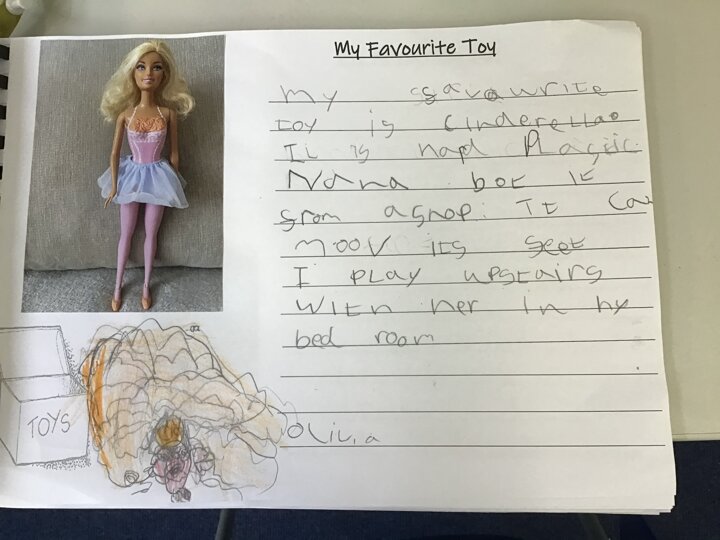 My Favourite Toy
my favourite
toy is Cinderella.
It is hapd Plastic.
Nana bot it
from a shop. It Can
moov its feet
I play upstairs
with her in hy
bed room
TOYS
Olivia